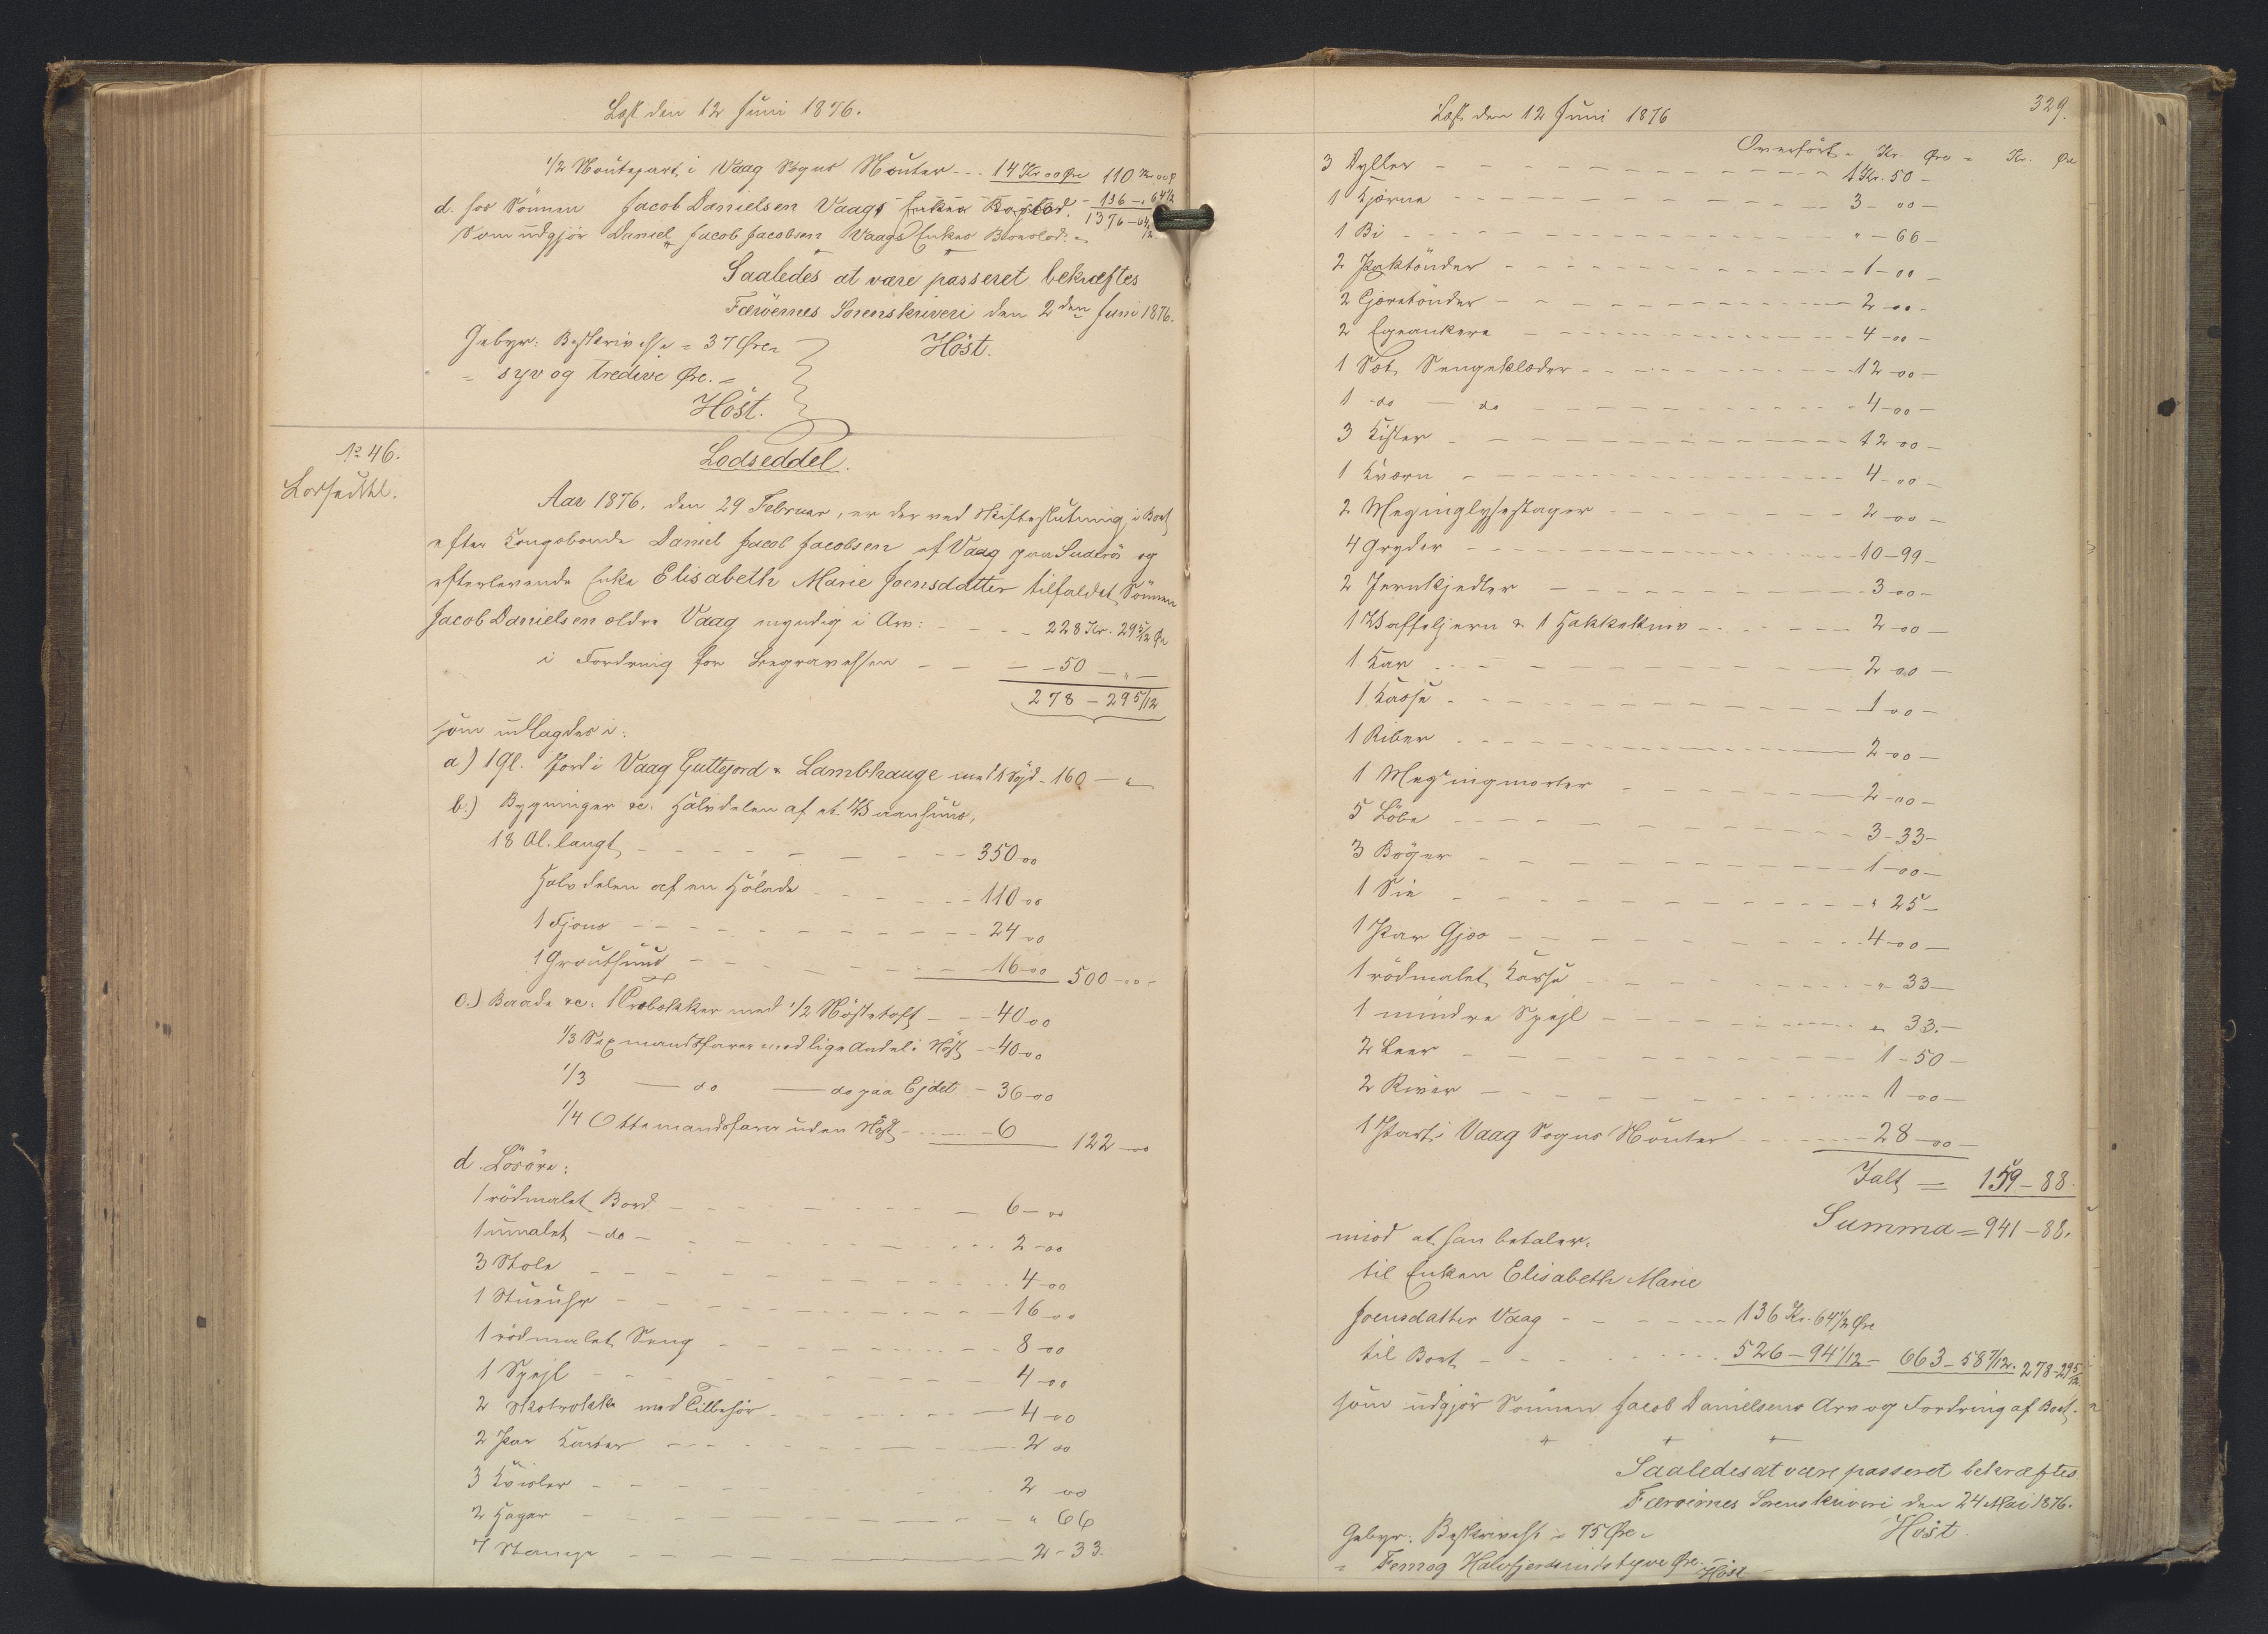 Læst den 12 Juni 1876.
1/2 Noutepart i Vaag Sogns Nouter - - - 14 Kr 00 Øre 110 Kr 00 Ø
d. hos Sönnen Jacob Danielsen Vaags - 136 - 64 1/2
1376 - 64 1/2
Som udgjör Daniel Jacob Jacobsen Vaags Enkes Boeslod. -
Saaledes at være passeret bekræftes
Færöernes Sorenskriveri den 2den Juni 1876.
Gebyr: Beskrivelse = 37 Øre
= syv og tredive Øre. =
Höst.
Höst.
No 46.
Lodseddel.
Aar 1876, den 29 Februar, er der ved Skifteslutning i Boet
efter Kongsbonde Daniel Jacob Jacobsen af Vaag paa Suderö og
efterlevende Enke Elisabeth Marie Joensdatter tilfaldet Sönnen
Jacob Danielsen ældre Vaag myndig i Arv: - - - 228 Kr. 29 5/12 Øre
i Fordring for Begravelsen - - - 50 - " -
278 - 29 5/12
som udlagdes i:
a) 1 Gl. Jord i Vaag Guttejord & Lambhauge med 160 - "
b.) Bygninger &c. Halvdelen af et Vaanhuus,
18 Al. langt - - - - - - 350 00
Halvdelen af en Hölade - - - - - 110 00
1 Hjons - - - - - - - 24 00
1 Grouthuus - - - - - - 16 00 500 - 00 -
c.) Baade &c. 1 med 1/2 Nöstetoft - - - 40 00
1/3 Sexmandsfarer med lige Andel i Nöst - - 40 00
1/3 - do - do paa Ejdet - 36 - 00
1/4 Ottemandsfarer uden Nöst - - - 6 122 - 00
d. Lösöre:
1 rödmalet Bord - - - - - - 6 - 00
1 umalet - do - - - - - - 2 - 00
3 Stole - - - - - - 4 - 00
1 Stueuhr - - - - - - 16 00
1 rödmalet Seng - - - - - - 8 - 00
1 Spejl - - - - - - 4 - 00
2 Skotrokke med Tilbehör - - - - 4 - 00
2 Par Karter - - - - - - 2 00
3 - - - - - - 2 00
2 - - - - - - " 66
7 - - - - - - 2 - 33.
Læst den 12 Juni 1876
329.
Overfört = Kr. Øre = Kr. Øre
3 Byller - - - - - - 1 Kr. 50 -
1 Kjærne - - - - - - 3 - 00 -
1 - - - - - - " - 66 -
2 - - - - - - 1 - 00 -
2 Gjæretönder - - - - - - 2 00 -
2 Egeankere - - - - - - 4 - 00 -
1 Sæt Sengeklæder - - - - - - 12 00 -
1 do - do - - - - - - 4 - 00 -
3 Kister - - - - - - 12 00 -
1 Kværn - - - - - - 4 - 00 -
2 Messinglysestager - - - - - - 2 00 -
4 Gryder - - - - - - 10 - 99 -
2 Jernkjedler - - - - - - 3 00 -
1 Vaffeljern & 1 Hakkekniv - - - - 2 - 00 -
1 Kar - - - - - - 2 - 00 -
1 Kasse - - - - - - 1 00 -
1 - - - - - - 2 00 -
1 Messingmorter - - - - - - 2 - 00 -
5 Löbe - - - - - - 3 - 33 -
3 Böger - - - - - - 1 - 00 -
1 Sie - - - - - - " 25 -
1 Par - - - - - - 4 - 00 -
1 rödmalet Kasse - - - - - - " 33 -
1 mindre Spejl - - - - - - " 33. -
2 Leer - - - - - - 1 - 50 -
2 River - - - - - - 1 - 00 -
1 Part i Vaag Sogns Nouter - - - - 28 - 00 -
Ialt = 159 - 88.
Summa = 941 - 88.
mod at han betaler.
til Enken Elisabeth Marie
Joensdatter Vaag - - - - - 136 Kr. 64 1/2 Øre
til Boet - - - - 526 - 94 1/12 - 663 - 58 7/12. 278 - 29 5/12.
som udgjör Sönnen Jacob Danielsens Arv og Fordring af Boet. -
Saaledes at være passeret bekræftes.
Færöernes Sorenskriveri den 24 Mai 1876.
Gebyr: Beskrivelse = 75 Øre.
Höst.
= Femog Halvfjerdsindstyve Øre. Höst